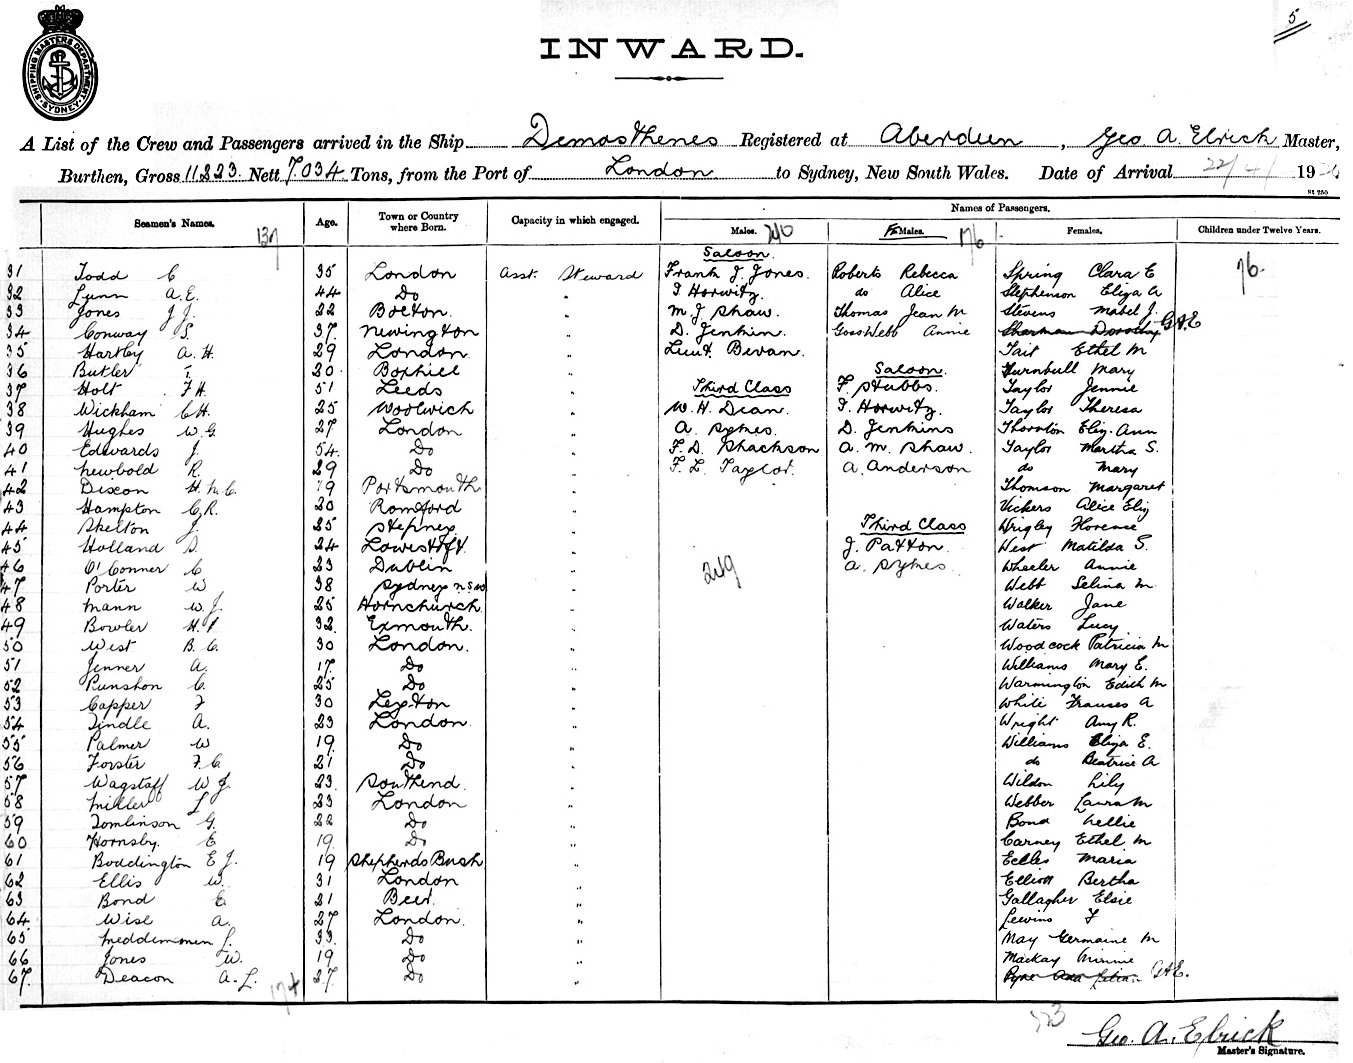 5
SHIPPING MASTERS DEPARTMENT SYDNEY
INWARD.
A List of the Crew and Passengers arrived in the Ship Demosthenes Registered at Aberdeen, Geo A. Elrick Master,
Burthen, Gross 11223 Nett 7.034 Tons, from the Port of London to Sydney, New South Wales. Date of Arrival 22/4/ 19
Seamen's Names. Age. Town or Country where Born. Capacity in which engaged. Names of Passengers.
Males. Males. Females. Children under Twelve Years.
137 240 Fe 176 76.
Saloon.
31 Todd C 35 London Asst. Steward Frank J. Jones. Roberts Rebecca Spring Clara E
32 Lunn A.E. 44 Do " I Horwitz. do Alice Stephenson Eliza A
33 Jones J J. 22 Bolton. " M J Shaw. Thomas Jean M Stevens Mabel J.
34 Conway S. 37 Newington " D. Jenkin. Goss Webb Annie Sharman Dorothy G.A.E
35 Hartley A. H. 29 London. " Lieut. Bevan. Tait Ethel M
36 Butler 20 " Saloon. Turnbull Mary
37 Holt F H. 51 Leeds " Third Class F. Stubbs. Taylor Jennie
38 Wickham C H. 25 Woolwich " W. H. Dean. I. Horwitz. Taylor Theresa
39 Hughes W. G. 27 London " A. Sykes. D. Jenkins Thornton Eliz. Ann
40 Edwards J. 54. Do " F. D. Shackson A. M. Shaw. Taylor Martha S.
41 Newbold R. 29 Do " F. L. Taylor. A. Anderson do Mary
42 Dixon H. M. C. 19 Portsmouth " Thomson Margaret
43 Hampton C. R. 20 Romford " Vickers Alice Eliz
44 Skelton J. 25 Stepney " Third Class Wrigley Florence
45 Holland S. 24 Lowestoft. " J. Patton. West Matilda S.
46 O'Conner C 23 Dublin " 249 A. Sykes. Wheeler Annie
47 Porter W 38 Sydney N.S.W " Webb Selina M.
48 Mann W. J. 25 Hornchurch " Walker Jane
49 Bowler H. 32 Exmouth. " Waters Lucy
50 West B. C. 30 London. " Woodcock Patricia M
51 Jenner A. 17 Do " Williams Mary E.
52 Punshon C. 25 Do " Warmington Edith M
53 Capper 30 Leyton " White Frances A
54 Tindle A. 23 London. " Wright Amy R.
55 Palmer W 19 Do " Williams Eliza E.
56 Forster F. C. 21 Do " do Beatrice A
57 Wagstaff W J. 23. Southend. " Wildon Lily
58 Miller L 23 London " Webber Laura M
59 Tomlinson G. 22 Do " Bond Nellie
60 Hornsby. E 19. Do " Carney Ethel M
61 Boddington E J. 19 Shepherds Bush " Eccles Maria
62 Ellis W. 31 London " Elliott Bertha
63 Bond E. 21 Beer. " Gallagher Elsie
64 Wise A. 27 London. " Lewins F
65 Meddemmen L. 33. Do " May Germaine M
66 Jones W. 19 Do " Mackay Minnie
67. Deacon A. L. 27. Do " Pyne Ada Lilian GAE.
174 323
Geo. A. Elrick
Master's Signature.